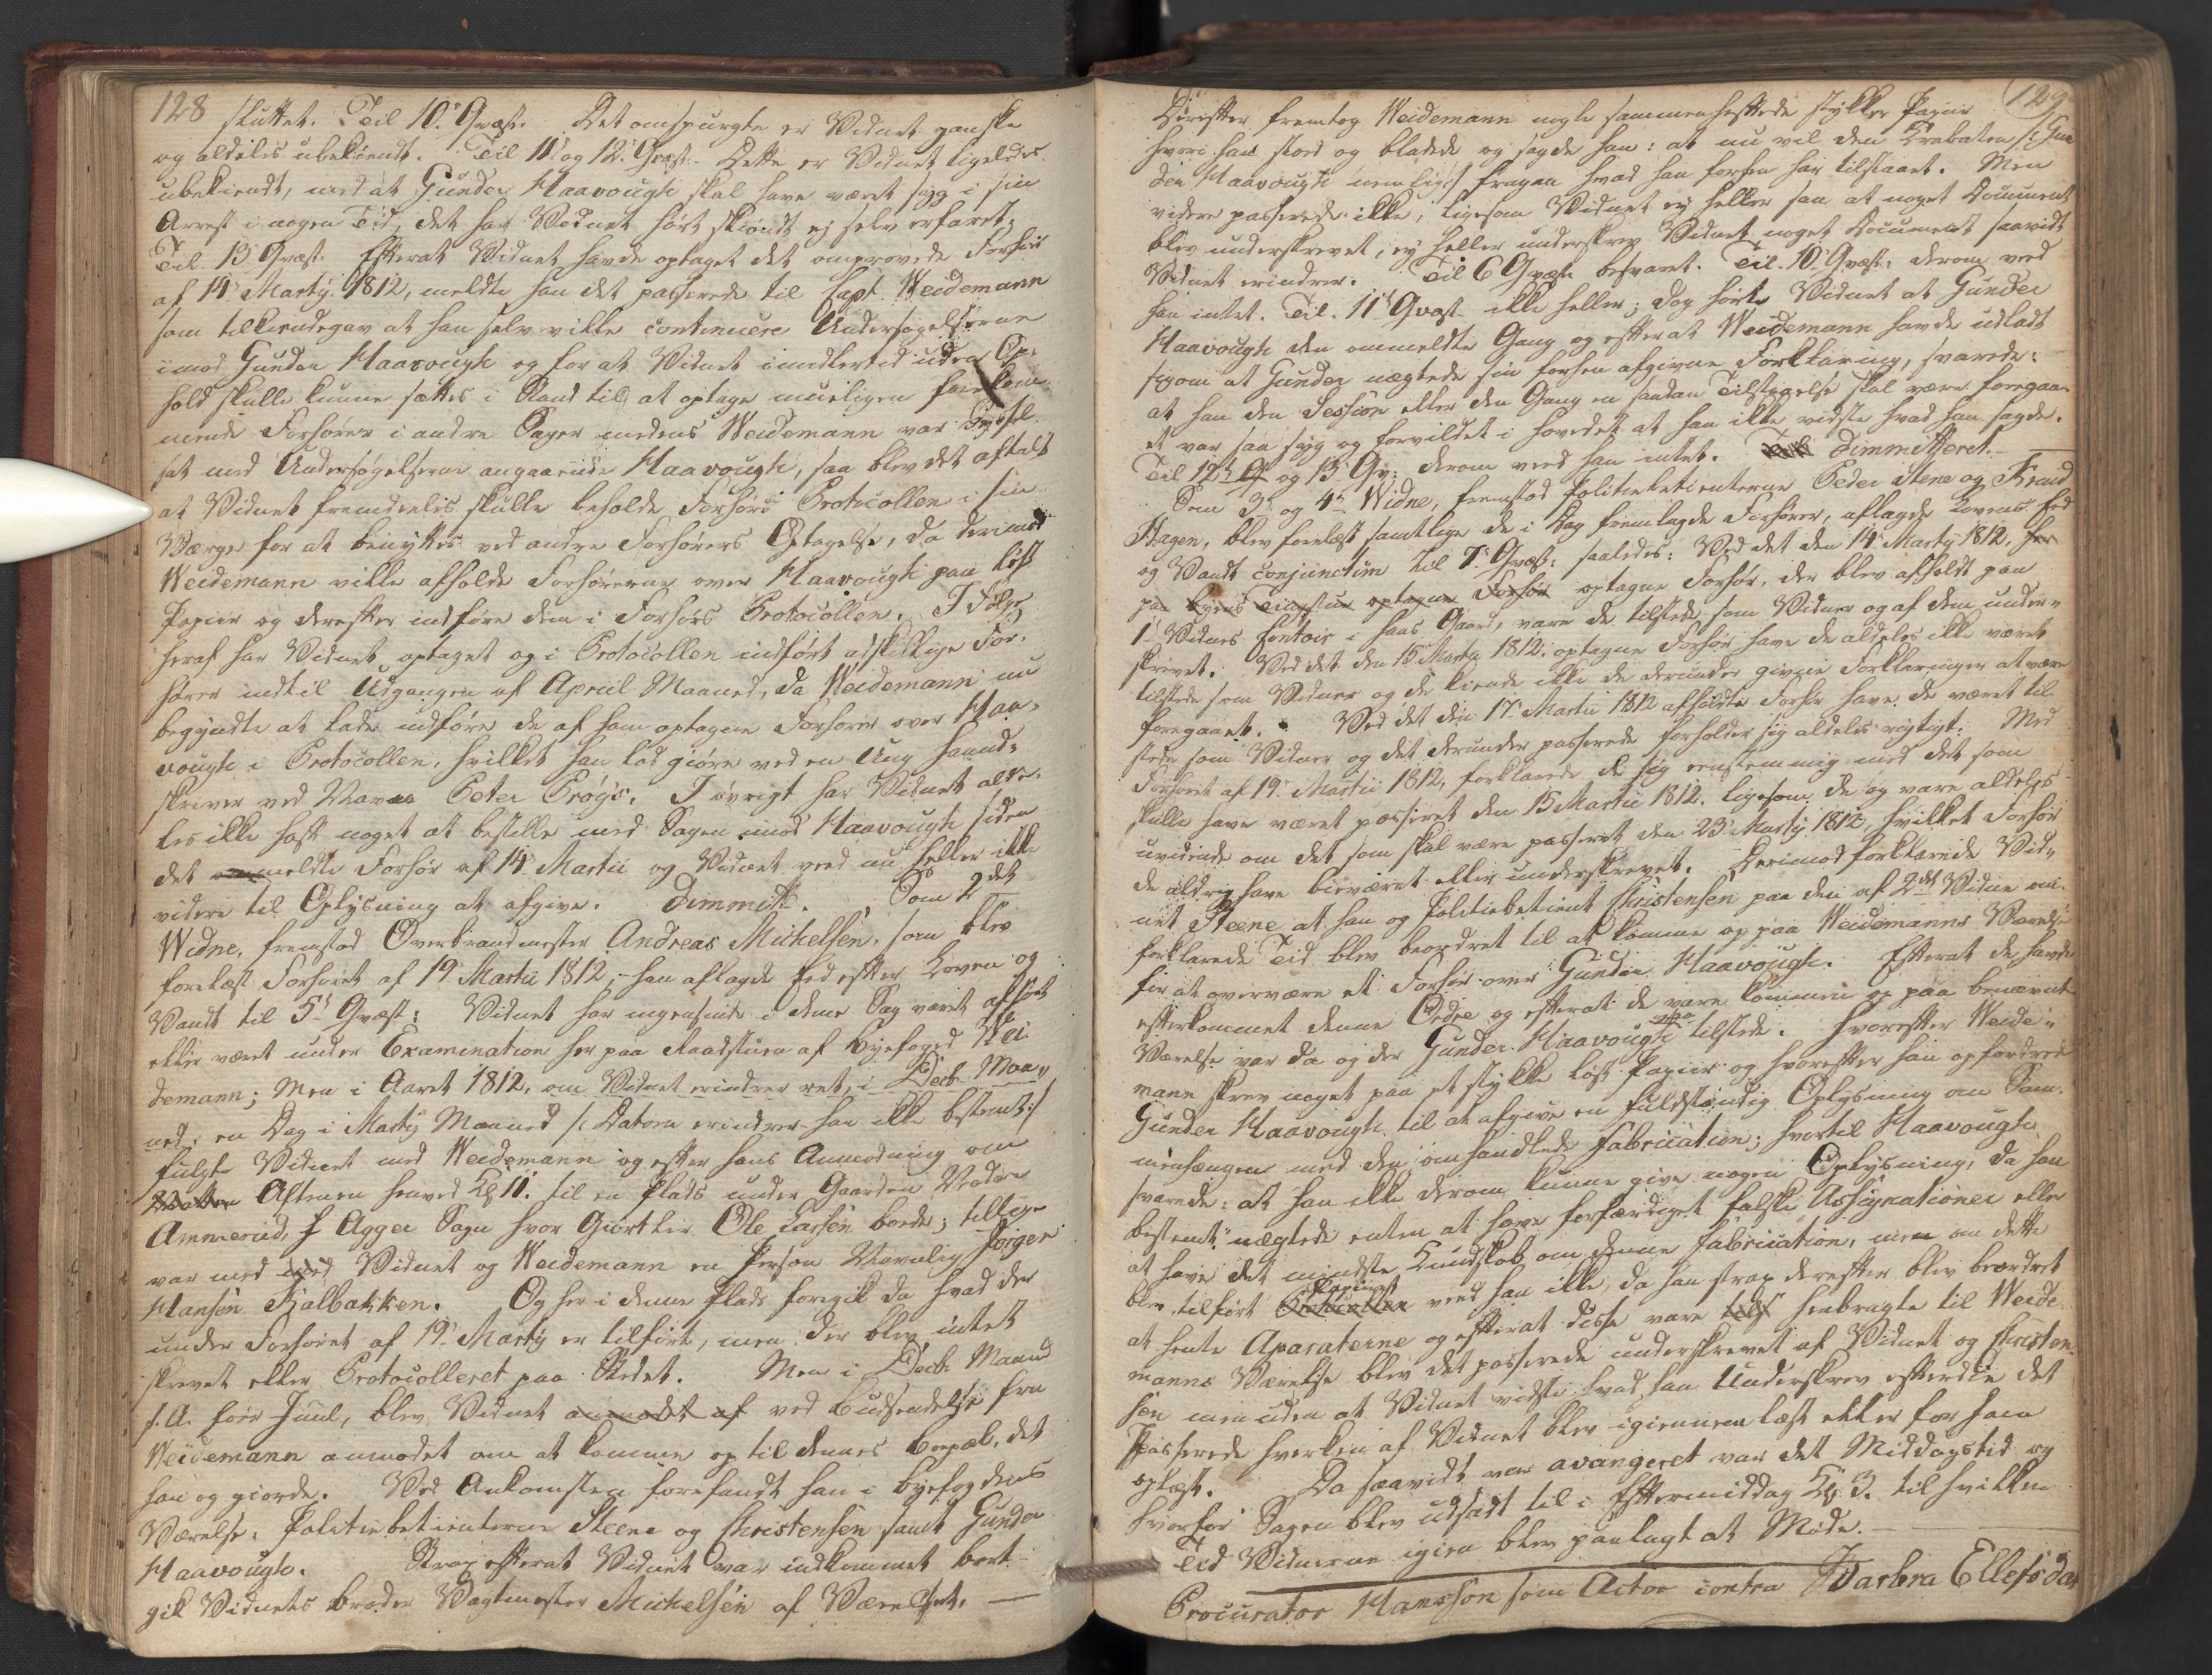 128
sluttet. Til 10de Qvæst. Det omspurgte er Vidnet ganske
og aldeles ubekiendt. Til 11te og 12te Qvæst. Dette er Vidnet ligeledes
ubekiendt, med at Gunder Haavough skal have været syg i sin
Arrest i nogen Tid, det har Vidnet hørt skiøndt ej selv erfaret;
Til 13 Qvæst. Efterat Vidnet havde optaget det omprovede Forhør
af 14de Martij 1812, meldte han det passerede til Capt. Weidemann
som tilkiendegav at han selv ville continuere Undersøgelserne
imod Gunder Haavough og for at Vidnet imidlertid uden Op-
hold skulle kunne sættes i Stand til at optage mueligen forekom
mende Forhører i andre Sager medens Weidemann var syssel
sat med Undersøgelserne angaaende Haavough, saa blev det aftalt
at Vidnet fremdeeles skulle beholde Forhørs Protocollen i sin
Værge for at benyttes ved andre Forhørers Optagelse, da derimod
Weidemann ville afholde Forhørerne over Haavough paa løst
Papier og derefter indføre dem i Forhørs Protocollen. I Følge
heraf har Vidnet optaget og i Protocollen indført adskillige For-
hører indtil Udgangen af April Maaned, da Weidemann nu
begyndte at lade indføre de af ham optagne Forhører over Haa-
vough i Protocollen, hvilket han lod giøre ved en Ung Haand-
skriver ved Navn Peter Prøgs. I øvrigt har Vidnet alde-
les ikke haft noget at bestille med Sagen imod Haavough siden
det ommeldte Forhør af 14 Martii og Vidnet veed nu heller ikke
videre til Oplysning at afgive. Dimmitt. Som 2det
Widne, fremstod Overbrandmester Andreas Michelsen, som blev
forelæst Forhøret af 19 Martii 1812, han aflagde Eed efter Loven og
Vandt til 5te Qvæst: Vidnet har ingensinde i denne Sag været afhørt
eller været under Examination her paa Raadstuen af Byefoged Wei
demann; Men i Aaret 1812, om Vidnet erindrer ret, i Decb. Maa-
ned, en Dag i Martij Maaned /: Datoen erindrer han ikke bestemt :/
fulgte Vidnet med Weidemann og efter hans Anmodning om
Aftenen henved Kl 11. til en Plads under Gaarden Nedre
Ammerud, i Agger Sogn hvor Giørtler Ole Larsen boede; tillige
var med Vidnet og Weidemann en Person Navnlig Jørgen
Hansen Kjalbakken. Og her i denne Plads foregik da hvad der
under Forhøret af 19 Martij er tilført, men der blev intet
skrevet eller Protocolleret paa Stedet. Men i Decb. Maaned
s. A. före Juul, blev Vidnet anmodet af ved Budsendelse fra
Weidemann anmodet om at komme op til dennes Bopæl, det
han og giorde. Ved Ankomsten forefandt han i Byefogdens
Værelse, Politiebetienterne Steene og Christensen samt Gunder
Haavough. Strax efterat Vidnet var indkommet bort-
gik Vidnets broder Vagtmester Michelsen af Værelset. —
129
Derefter fremtog Weidemann nogle sammenheftede stykker Papir
hvori han stod og bladede og sagde han: at nu vil den Krabaten /: Gun
der Haavough nemlig :/ fragaa hvad han forhen har tilstaaet. Men
videre passerede ikke, ligesom Vidnet ey heller saa at noget Document
blev underskrevet, ey heller underskrev Vidnet noget Document saavidt
Vidnet erindrer. Til 6 Qvæst besvaret. Til 10 Qvæst: derom veed
han intet. Til 11te Qvæst ikke heller; dog hørte Vidnet at Gunder
Haavough den ommeldte Gang og efterat Weidemann havde udladt
sig om at Gunder nægtede sin forhen afgivne Forklaring, svarede:
at han den Session eller den Gang en saadan Tilstaaelse skal være foregaa-
et var saa syg og forvildet i hovedet at han ikke vidste hvad han sagde.
Til 12te og 13 Qv: derom veed han intet. Dimmitteret. —
Som 3die og 4de Widne, fremstod Politiebetienterne Peder Stene og Knud
Hagen, blev forelæst samtlige de i Sag fremlagde Forhører, aflagde Lovens Eed
og Vandt conjunctim til 7de Qvæst: saaledes: Ved det den 14 Martij 1812. her
paa Byens Tingstue optagne Forhør optagne Forhør, der blev afholdt paa
1ste Vidnes Contoir i hans Gaard, vare de tilstede som Vidner og af dem under-
skrevet. Ved det den 15 Martii 1812. optagne Forhør have de aldeles ikke været
tilstede som Vidner og de kiende ikke de derunder givne Forklaringer at være
foregaaet. Ved det den 17 Martii 1812 afholdte Forhør have de været til
stede som Vidner og det derunder passerede forholder sig aldeles rigtigt. Med
Forhøret af 19 Martii 1812, forklarede de sig eenstemmig med det som
skulle have været passeret den 15 Martii 1812. ligesom de og vare aldeles
uvidende om det som skal være passeret den 23 Martij 1812, hvilket Forhør
de aldrig have biværet eller underskrevet. Derimod forklarede Vid-
net Steene at han og Politiebetient Christensen paa den af 2det Vidne om-
forklarede Tid blev beordret til at komme op paa Weidemanns Værelse
for at overvære et Forhør over Gunder Haavough. Efterat de havde
efterkommet denne Ordre og efterat de vare kommen op paa benævnte
Værelse var da og der Gunder Haavough tilstede. Hvorefter Weide-
mann skrev noget paa et stykke løst Papiir og hvorefter han opfordrede
Gunder Haavough til at afgive en fuldstændig Oplysning om Sam-
menhængen med den omhandlede Fabrication; hvortil Haavough
svarede: at han ikke derom kunne give nogen Oplysning, da han
bestemt nægtede enten at have forfærdiget falske Assignationer eller
at have det mindste Kundskab om denne Fabrication, men om dette
blev tilført Protocollen Papiret veed han ikke, da han strax derefter blev beordret
at hente Aparaterne og efterat disse vare henbragte til Weide-
manns Værelse blev det passerede underskrevet af Vidnet og Christen-
sen men uden at Vidnet vidste hvad han Underskrev efterdie det
Passerede hverken af Vidnet blev igiennemlæst eller for ham
oplæst. Da saavidt var avangeret var det Middagstid og
hvorfor Sagen blev udsadt til i Eftermiddag Kl. 3. til hvilken
Tid Vidnerne igien blev paalagt at Møde.
Procurator Hansson som Actor contra Barbra Ellefsdat